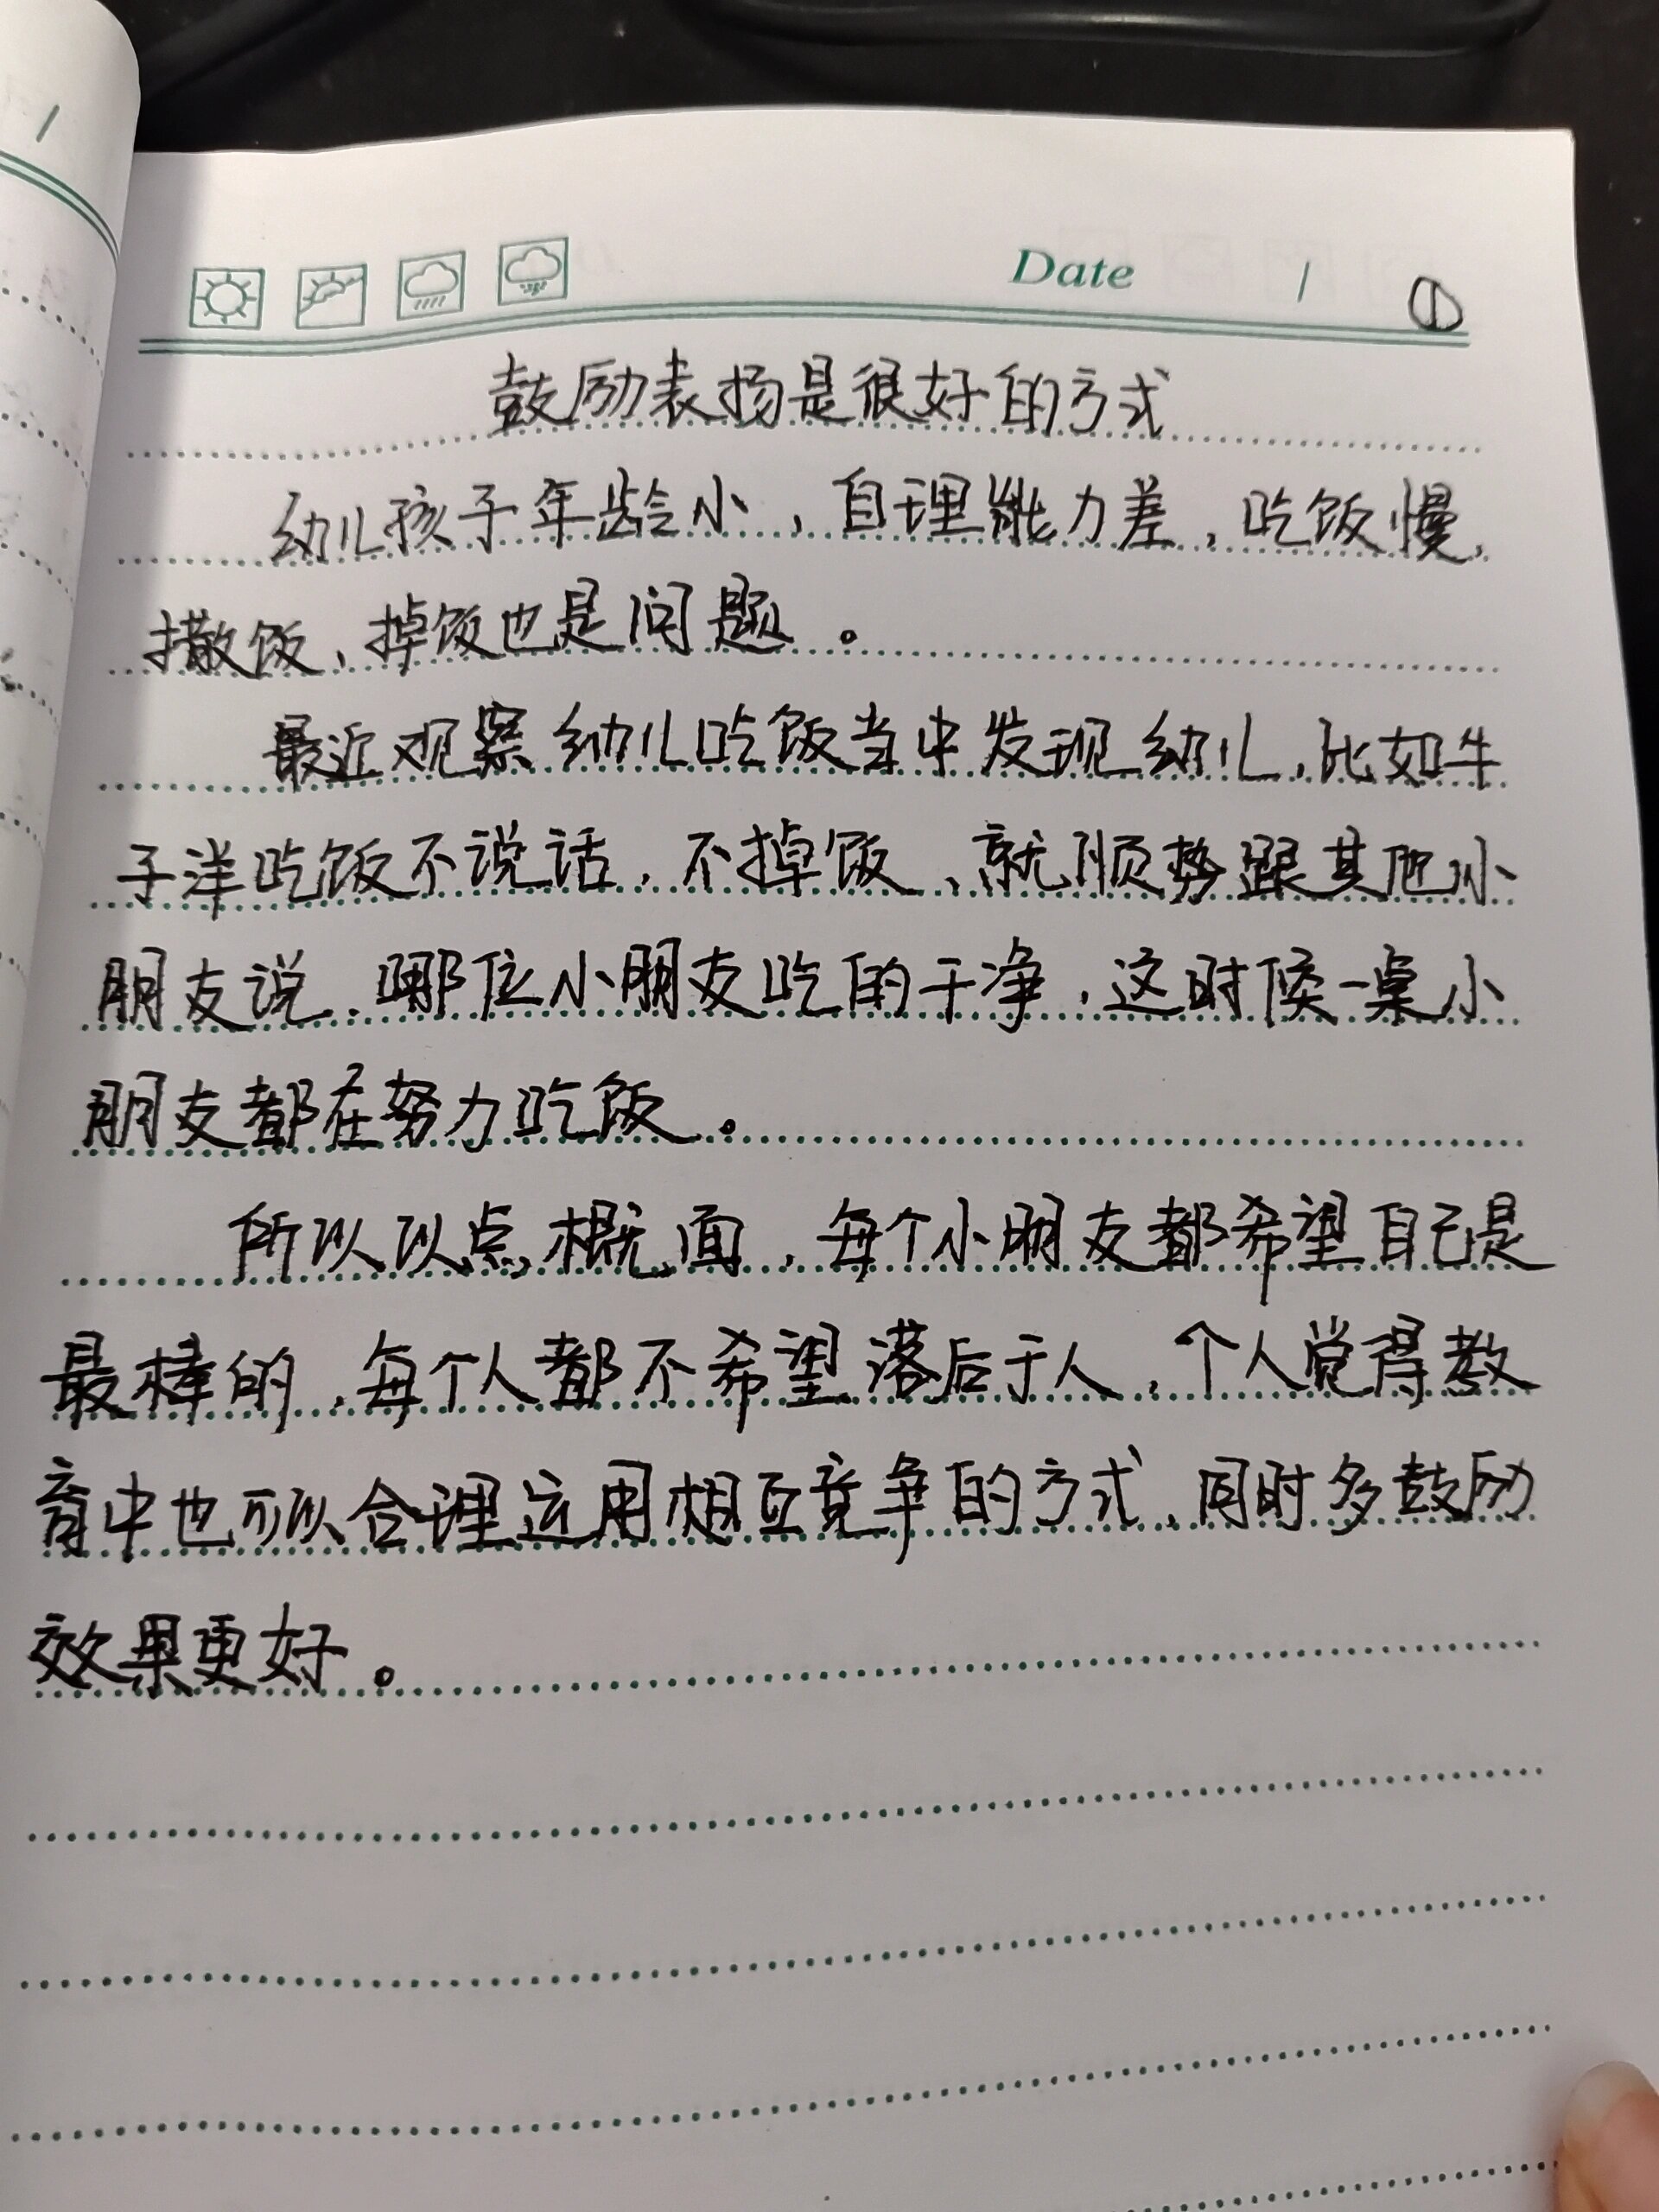 Date / ①
鼓励表扬是很好的方式
幼儿孩子年龄小，自理能力差，吃饭慢，
撒饭、掉饭也是问题。
最近观察幼儿吃饭当中发现幼儿，比如牛
子洋吃饭不说话，不掉饭、就顺势跟其他小
朋友说，哪位小朋友吃的干净，这时候一桌小
朋友都在努力吃饭。
所以以点概面，每个小朋友都希望自己是
最棒的，每个人都不希望落后于人，个人觉得教
育中也可以合理运用相互竞争的方式、同时多鼓励
效果更好。